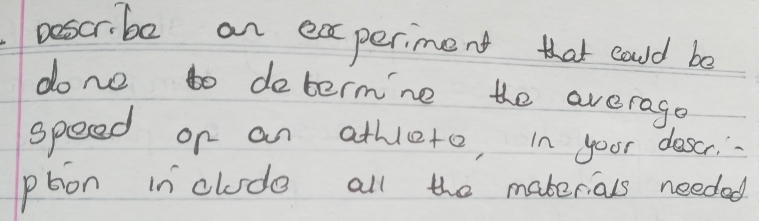 Describe an experiment that could be
done to determine the average
speed of an athlete, in your descri-
ption include all the materials needed